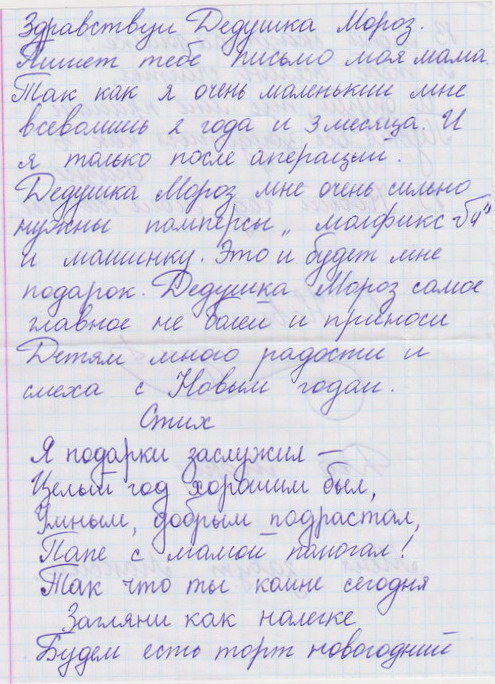 Здравствуй Дедушка Мороз.
Пишет тебе письмо моя мама.
Так как я очень маленький мне
всеволишь 2 года и 3 месяца. И
я только после аперации.
Дедушка Мороз мне очень сильно
нужны памперсы „молфикс-5ч"
и машинку. Это и будет мне
подарок. Дедушка Мороз самое
главное не болей и приноси
Детям много радости и
смеха с Новым годам.
Стих
Я подарки заслужил —
Целый год хорошим был,
Умным, добрым подрастал,
Папе с мамой помогал!
Так что ты комне сегодня
Загляни как налегке
Будем есть торт новогодний